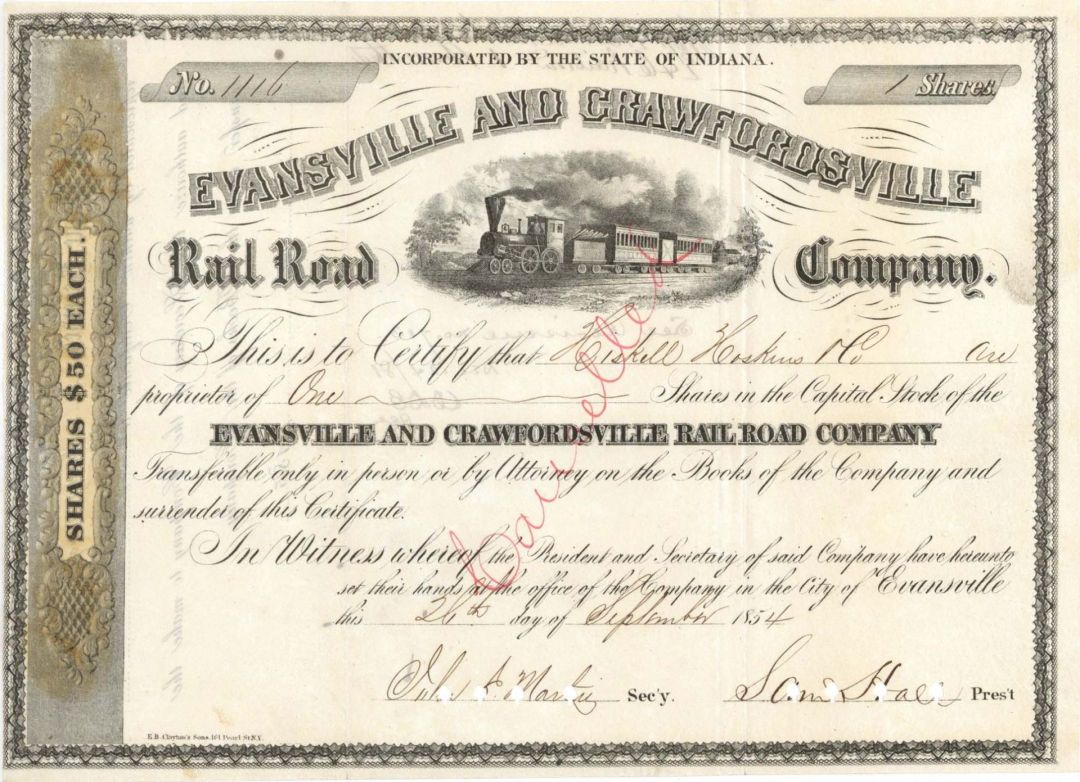 INCORPORATED BY THE STATE OF INDIANA.
No. 1116
1 Shares
EVANSVILLE AND CRAWFORDSVILLE
Rail Road Company.
SHARES $50 EACH.
This is to Certify that Hiskell Hoskins & Co are
proprietor of One Shares in the Capital Stock of the
EVANSVILLE AND CRAWFORDSVILLE RAIL ROAD COMPANY
Transferable only in person or by Attorney on the Books of the Company and
surrender of this Certificate.
In Witness whereof the President and Secretary of said Company have hereunto
set their hands at the office of the Company in the City of Evansville
this 26th day of September 1854
Cancelled
John S. Martin Sec'y.
Sam Hall Pres't
E.B. Clayton's Sons. 161 Pearl St. N.Y.